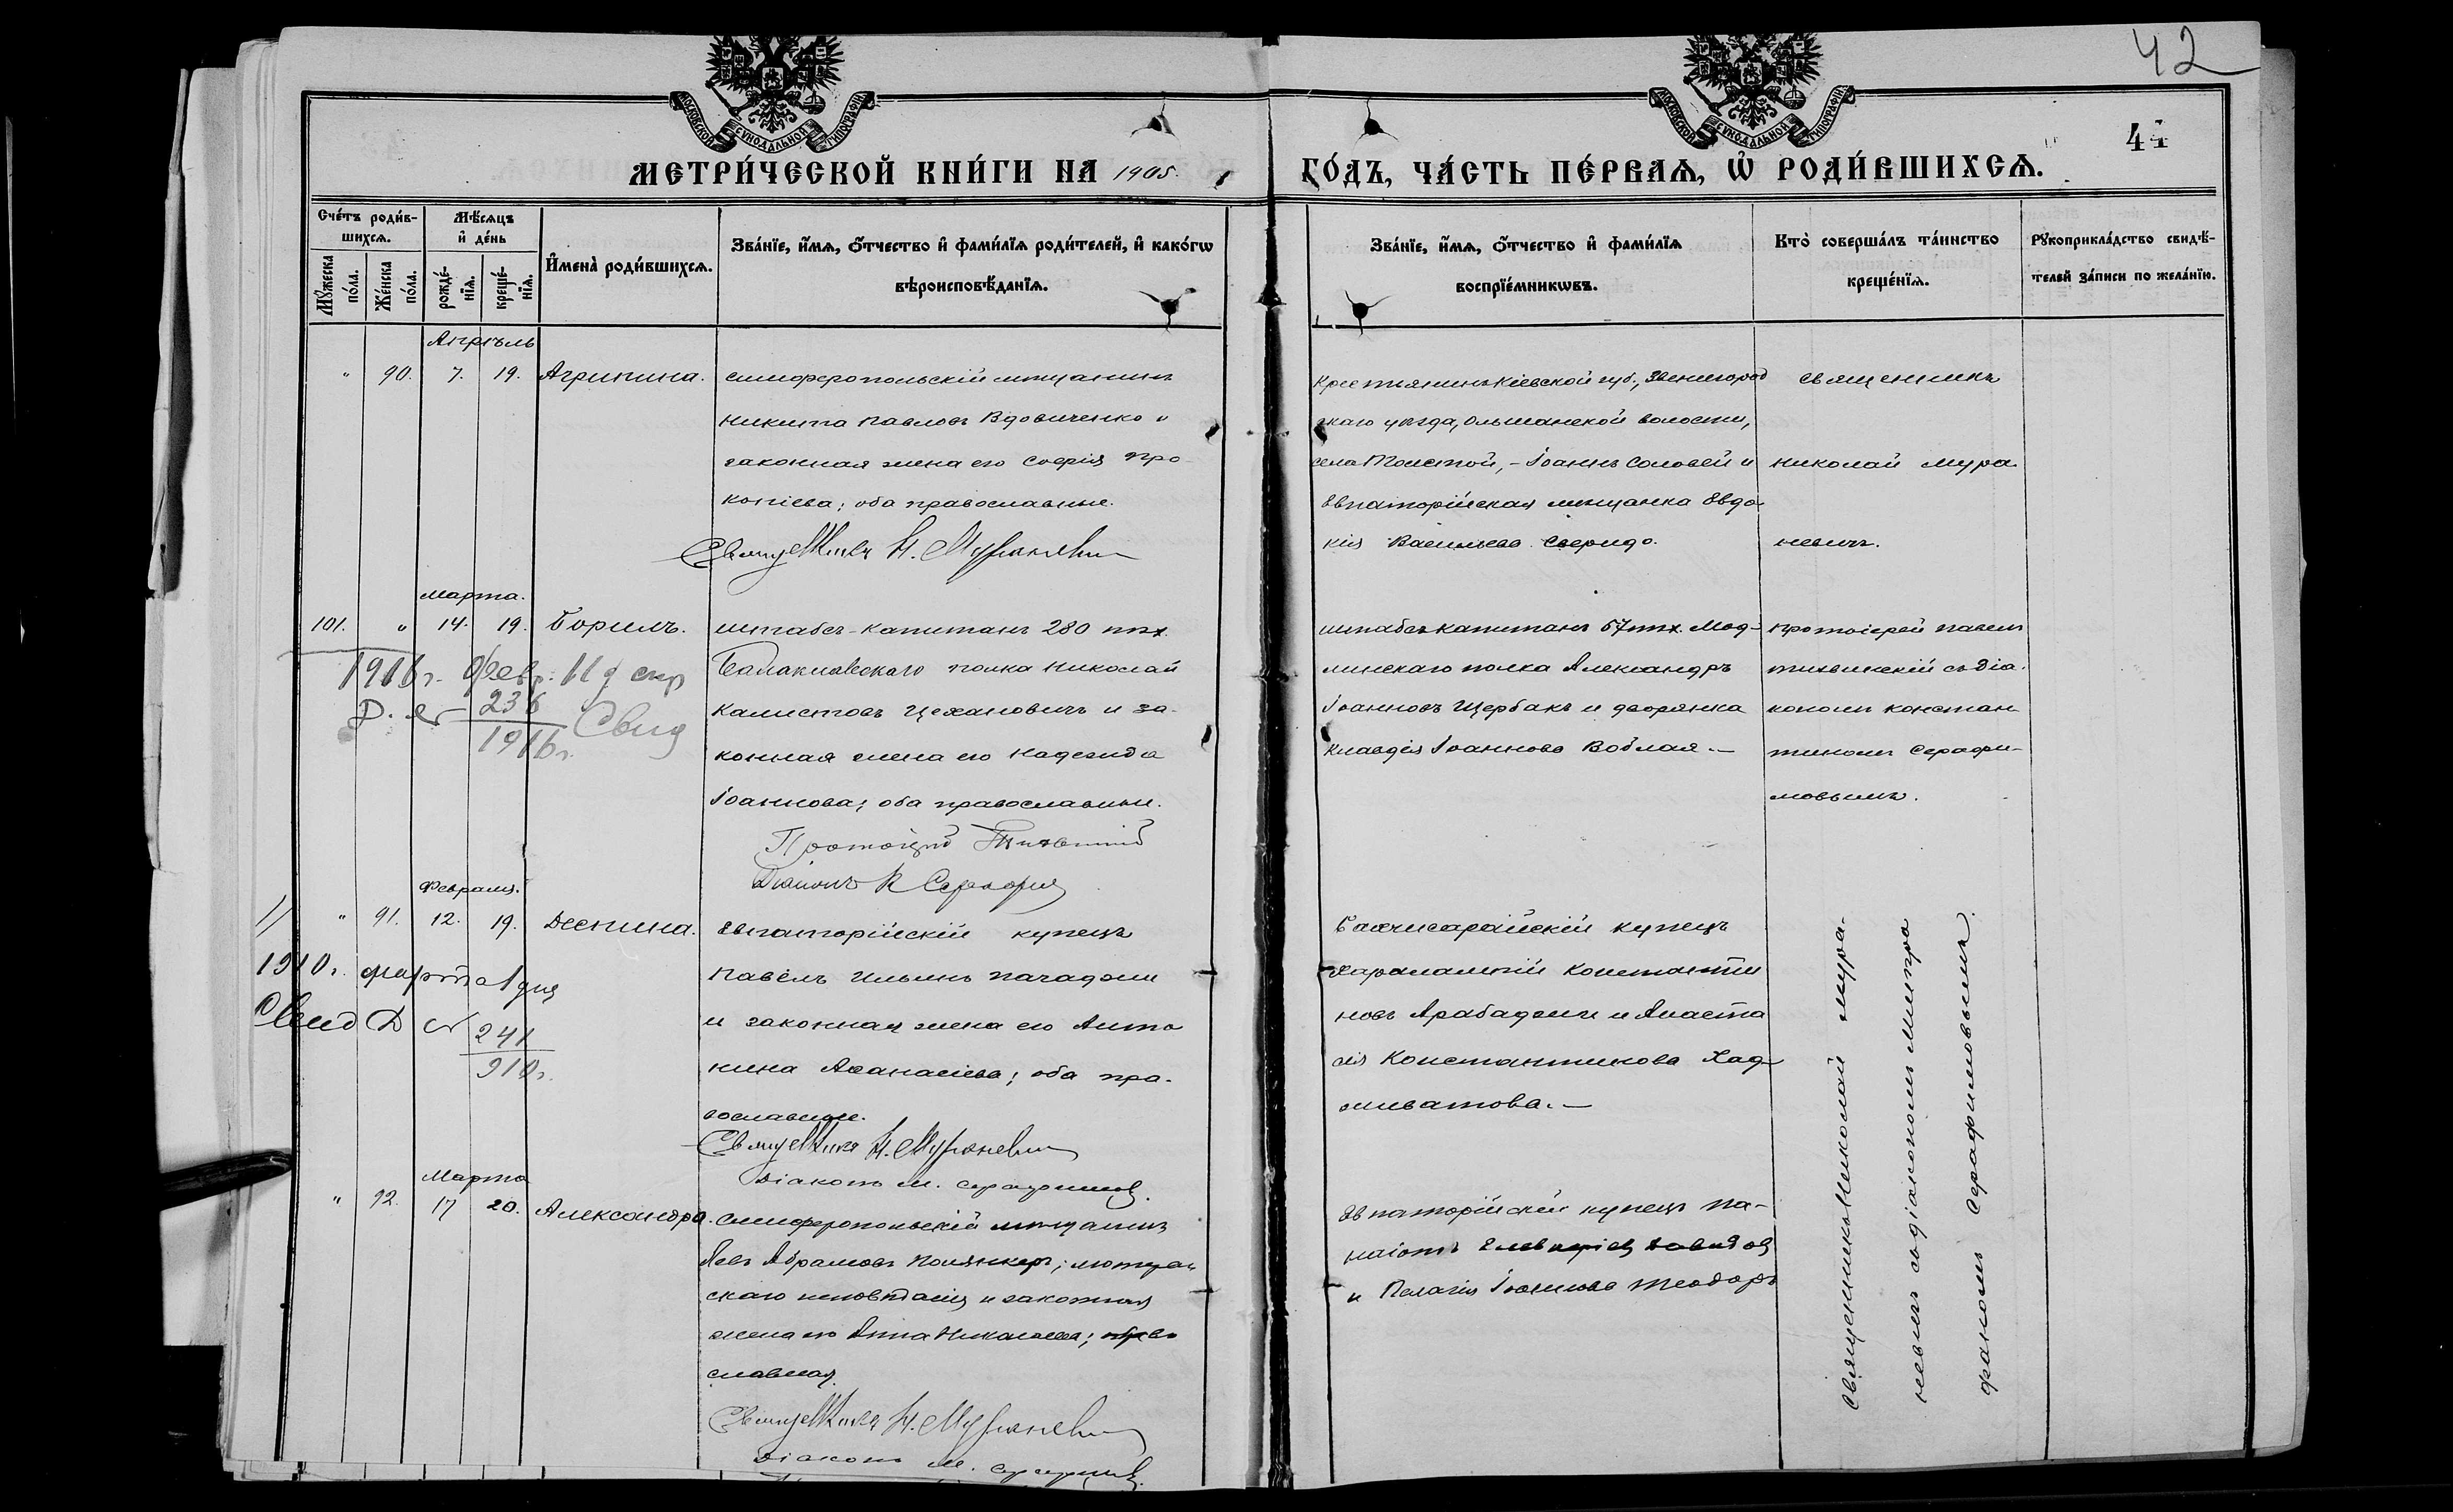 42
44
МОСКОВСКОЙ СѴНОДАЛЬНОЙ ТИПОГРАФІИ
МОСКОВСКОЙ СѴНОДАЛЬНОЙ ТИПОГРАФІИ
МЕТРИ́ЧЕСКОЙ КНИ́ГИ НА 1905.
ГО́ДЪ, ЧА́СТЬ ПЕ́РВАѦ, Ѡ҆ РОДИ́ВШИХСѦ.
Сче́тъ роди́в-
шихсѧ.
Мꙋ́жеска
по́ла.
Же́нска
по́ла.
Мѣ́сѧцъ
и҆ де́нь
рожде́-
нїѧ.
креще́-
нїѧ.
И҆мена̀ роди́вшихсѧ.
Зва́нїе, и҆́мѧ, ѻ҆́тчество и҆ фами́лїѧ роди́телей, и҆ како́гѡ
вѣроисповѣ́данїѧ.
Зва́нїе, и҆́мѧ, ѻ҆́тчество и҆ фами́лїѧ
воспрїе́мникѡвъ.
Кто̀ соверша́лъ та́инство
креще́нїѧ.
Рꙋкоприкла́дство свидѣ́-
телей за́писи по жела́нїю.
Апрѣль
" 90. 7. 19. Агрипина.
симферопольскій мѣщанинъ
Никита Павловъ Вдовиченко и
законная жена его Софія Про
копіева; оба православные.
Священникъ Н. Мураневич
Крестьянинъ Кіевской губ., Звенигород
скаго уѣзда, Ольшанской волости,
села Толстой, - Іоаннъ Соловей и
Евпаторійская мѣщанка Евдо
кія Васильева Сверидо.
Священникъ
Николай Мура
невичъ.
Марта.
101. " 14. 19. Борисъ.
штабсъ-капитанъ 280 пѣх.
Балаклавскаго полка Николай
Калистовъ Цехановичъ и за-
конная жена его Надежда
Іоаннова; оба православные.
Протоіерей Тихвинскій
Діаконъ К Серафим
1916 г. Февр. 11 д
236
1916 г.
Свид
штабсъ капитанъ 57 пѣх. Мод-
линскаго полка Александръ
Іоанновъ Щербакъ и дворянка
Клавдія Іоаннова Воблая.—
Протоіерей Павелъ
Тихвинскій съ діа.
кономъ Констан
тиномъ Серафи-
мовымъ.
Февраля.
" 91. 12. 19. Деспина.
Евпаторійскій купецъ
Павелъ Ильинъ Пачаджи
и законная жена его Анто
нина Аѳанасіева; оба пра-
вославные.
Священникъ Н. Мураневич
Діаконъ М. Серафимов.
1910 г. марта 1 дня
Свид Д
241
910 г.
Бахчисарайскій купецъ
Харалампій Константи
новъ Арабаджи и Анаста
сія Константинова Хад-
живатова.—
Священникъ Николай Мура-
невичъ съ діакономъ Митро
фаномъ Серафимовымъ.
Марта
" 92. 17 20. Александра.
Симферопольскій мѣщанинъ
Левъ Абрамовъ Полянкеръ; лютеран
скаго исповѣданія и законная
жена его Анна Николаева; право
славная.
Священникъ Н. Мураневич
Діаконъ М. Серафимов.
Евпаторійскій купецъ Па-
наіотъ Елевѳеріевъ Давидов
и Пелагія Іоаннова Теодоръ